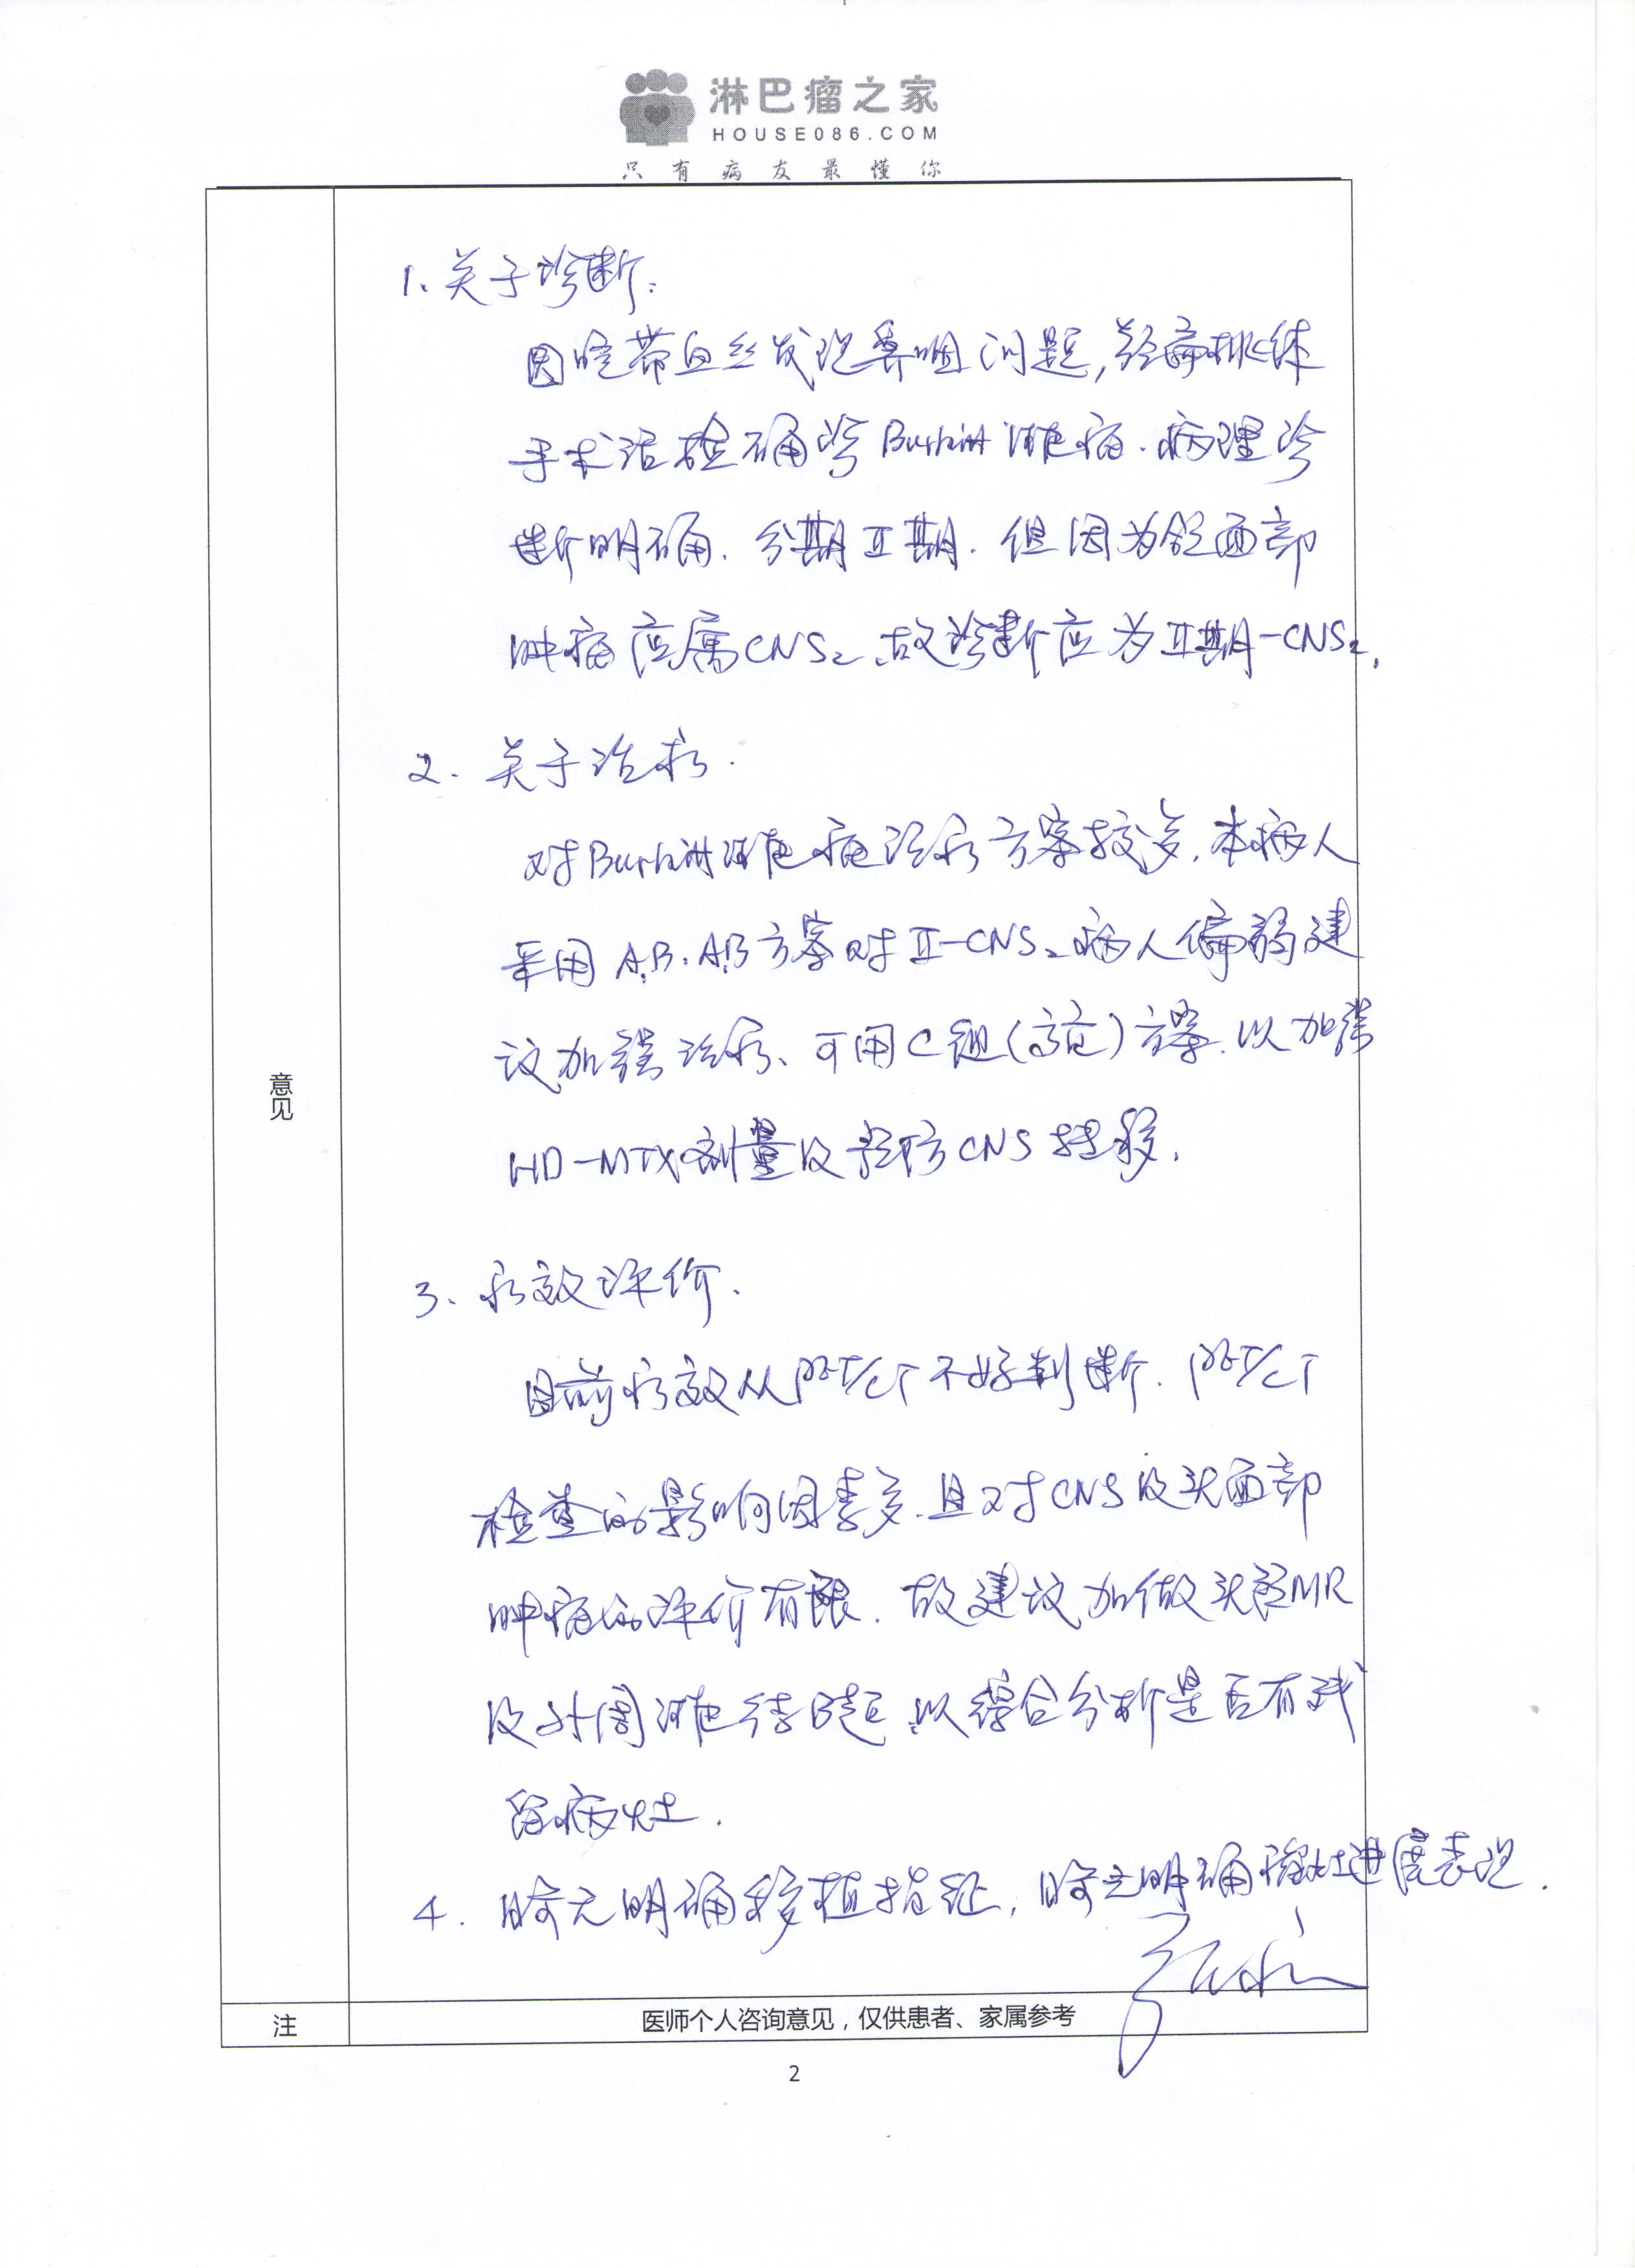 淋巴瘤之家
HOUSE086.COM
只有病友最懂你
意见
1、关于诊断：
因痰带血丝发现鼻咽问题,经扁桃体
手术活检确诊Burkitt淋巴瘤.病理诊
断明确.分期Ⅱ期.但因为颌面部
肿瘤应属CNS2.故诊断应为Ⅱ期-CNS2.
2.关于治疗.
对Burkitt淋巴瘤治疗方案较多,本病人
采用A.B.AB方案对Ⅱ-CNS2病人偏弱建
议加强治疗、可用C组(高危)方案.以加强
HD-MTX剂量及预防CNS转移.
3、疗效评价.
目前疗效从PET/CT不好判断.PET/CT
检查的影响因素多.且对CNS及头面部
肿瘤的评价有限.故建议加做头颈MR
及外周淋巴结B超.以综合分析是否有残
留病灶.
4.暂无明确移植指征,暂无明确瘤灶进展表现.
注
医师个人咨询意见，仅供患者、家属参考
2